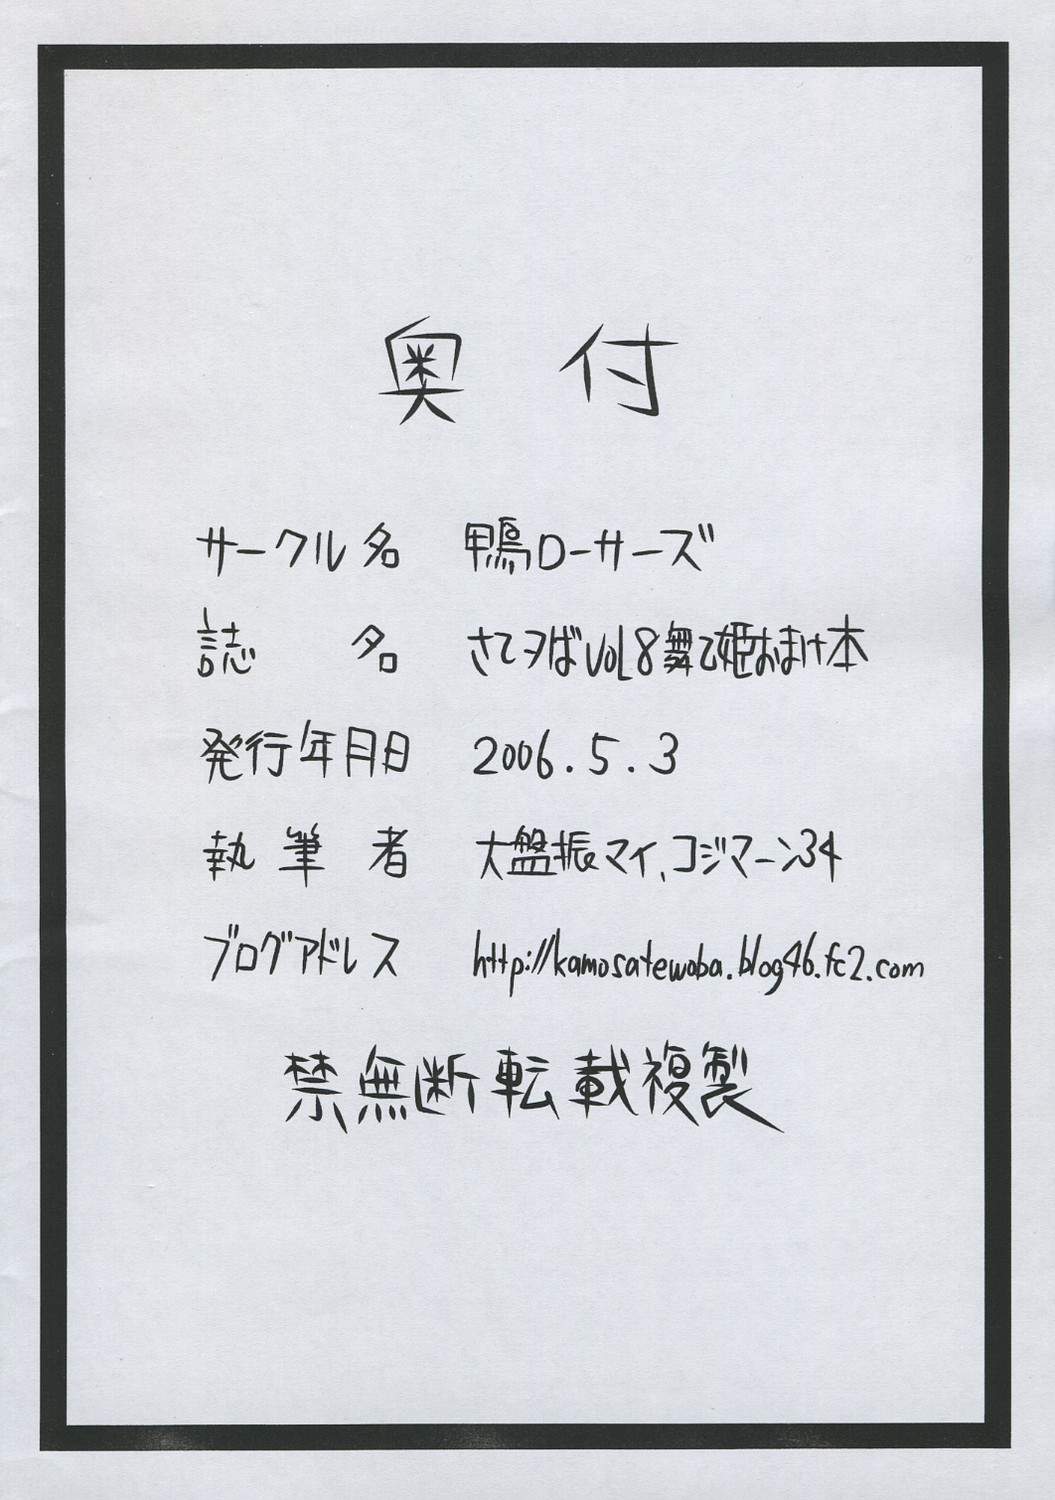 奥付
サークル名 鴨ローサーズ
誌名 さてヲばvol8舞乙姫おまけ本
発行年月日 2006.5.3
執筆者 大盤振マイ、コジマーン34
ブログアドレス http://kamosatewoba.blog46.fc2.com
禁無断転載複製